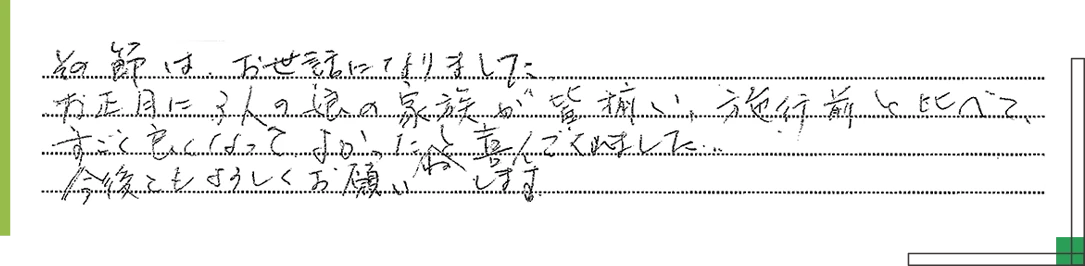 その節は、お世話になりました。
お正月に3人の娘の家族が皆揃い、施行前と比べて、
すごく良くなって、よかったねと喜んでくれました…
今後ともよろしくお願いします